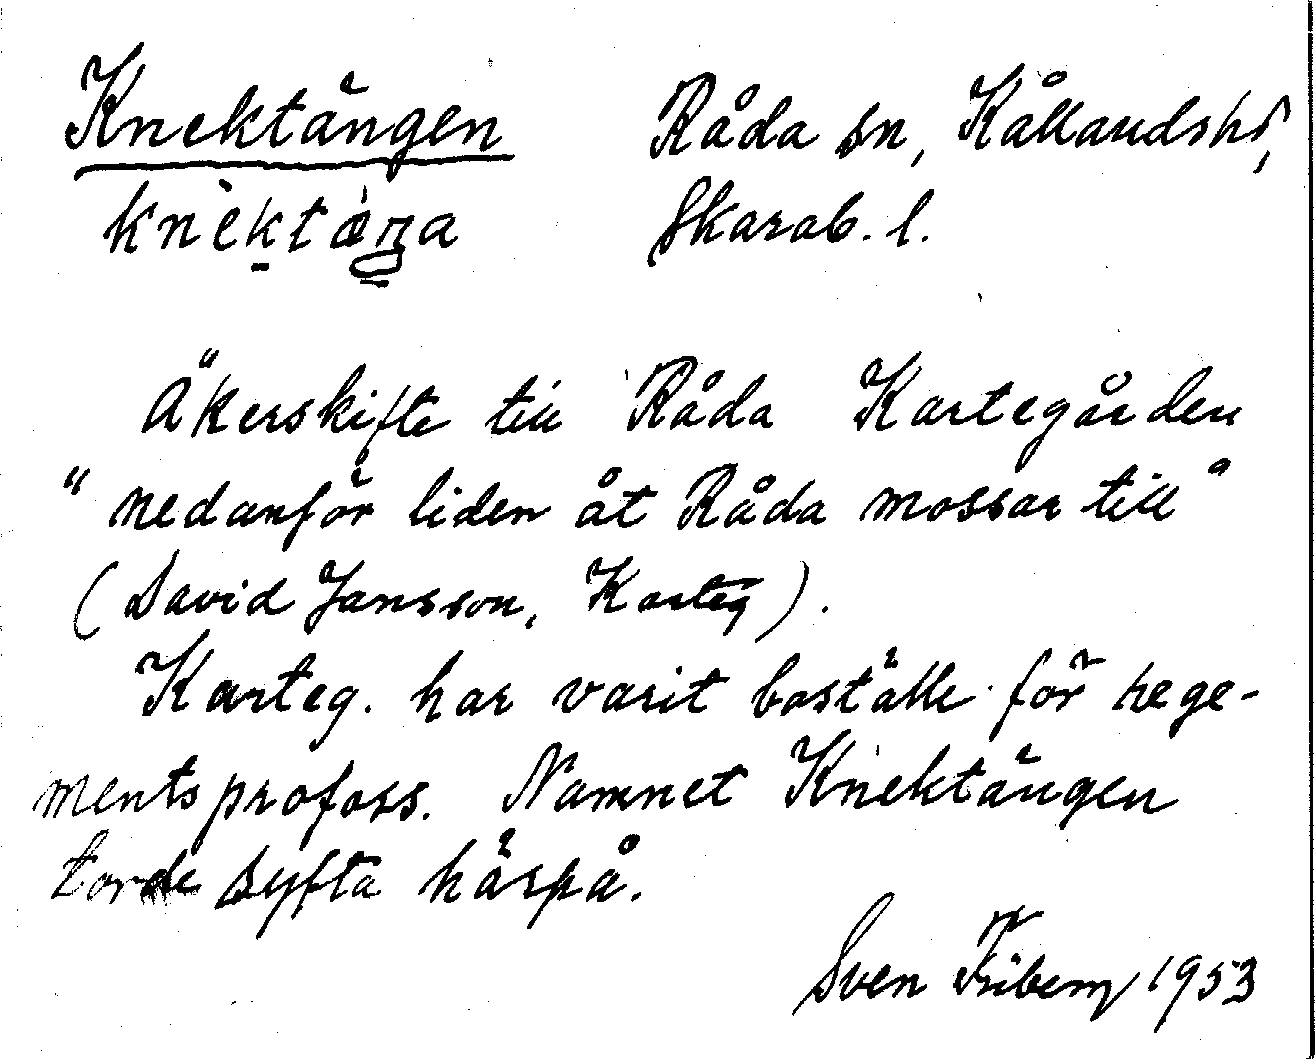 Knektängen Råda sn, Kållandshd,
knèktǽŋa Skarab. l.
Åkerskifte till Råda Kartegården
"nedanför liden åt Råda mossar till"
(David Jansson, Karteg).
Karteg. har varit boställe för rege-
mentsprofoss. Namnet Knektängen
torde syfta härpå.
Sven Friberg 1953